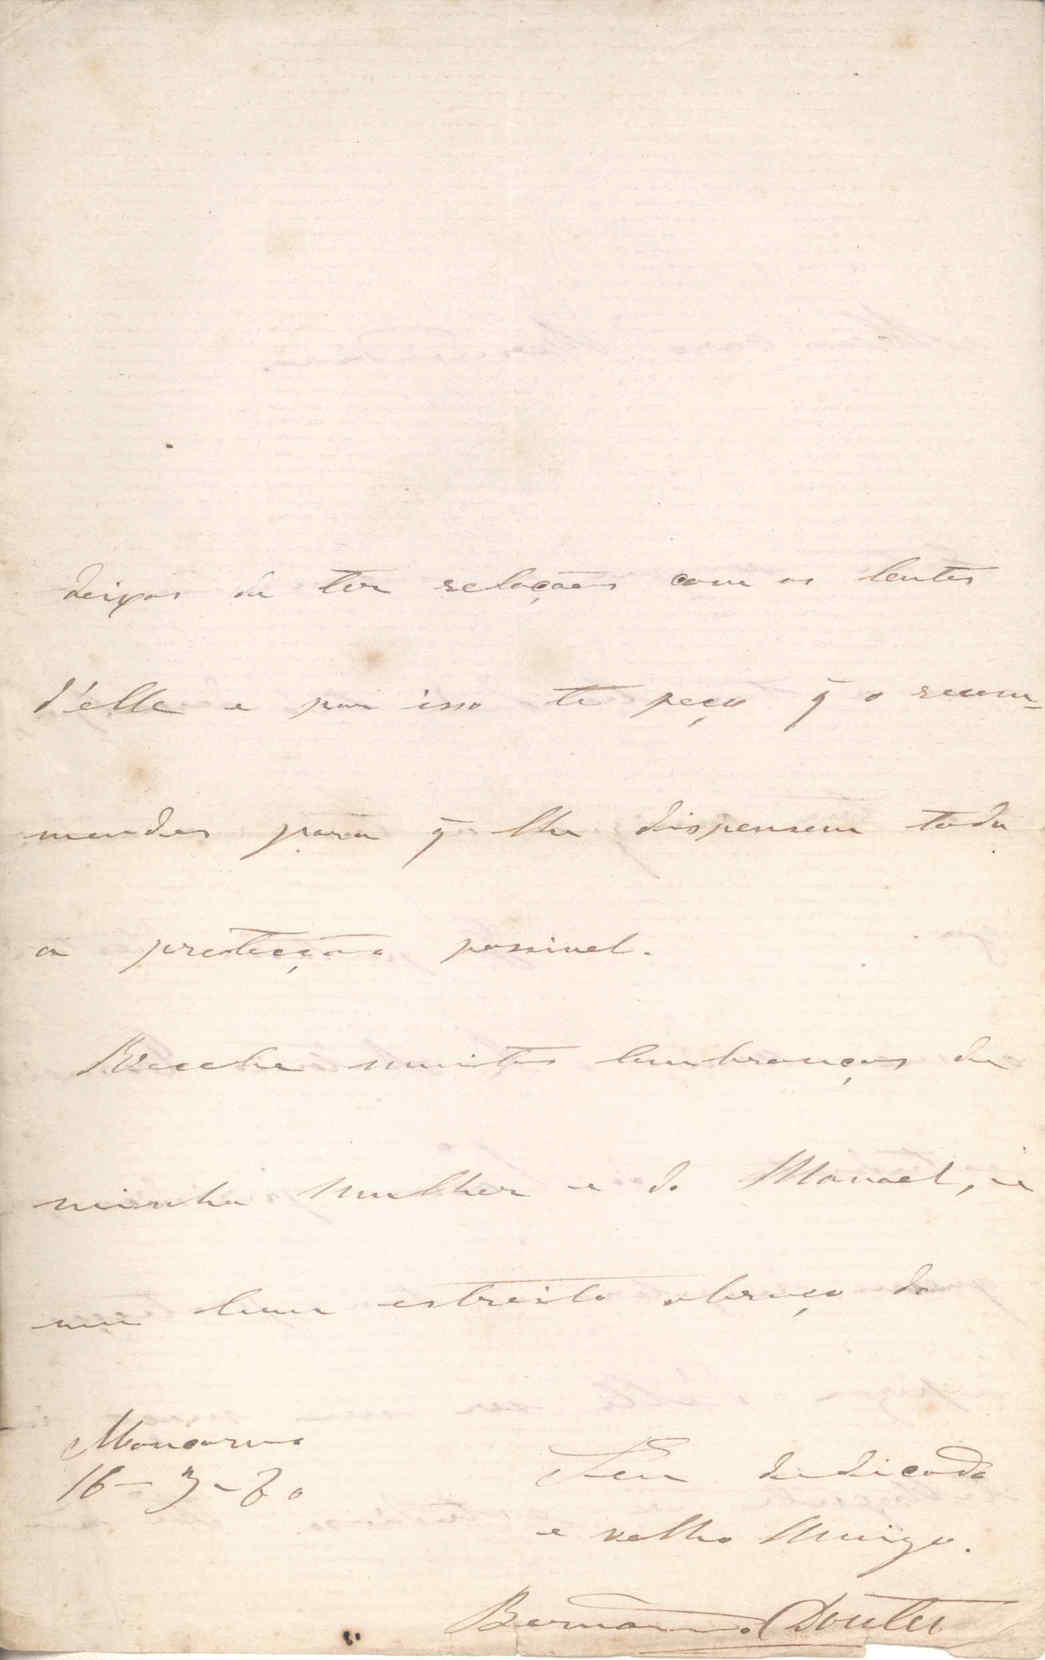 deixas de ter relações com os lentes
d'elle e por isso te peço q̃ o recom-
mendes para q̃ lhe dispensem toda
a protecção possivel.
Recebe muitas lembranças de
minha mulher e do Manoel, e
um bom estreito abraço do
Moncorvo
16-3-80
Teu dedicado
e velho Amigo.